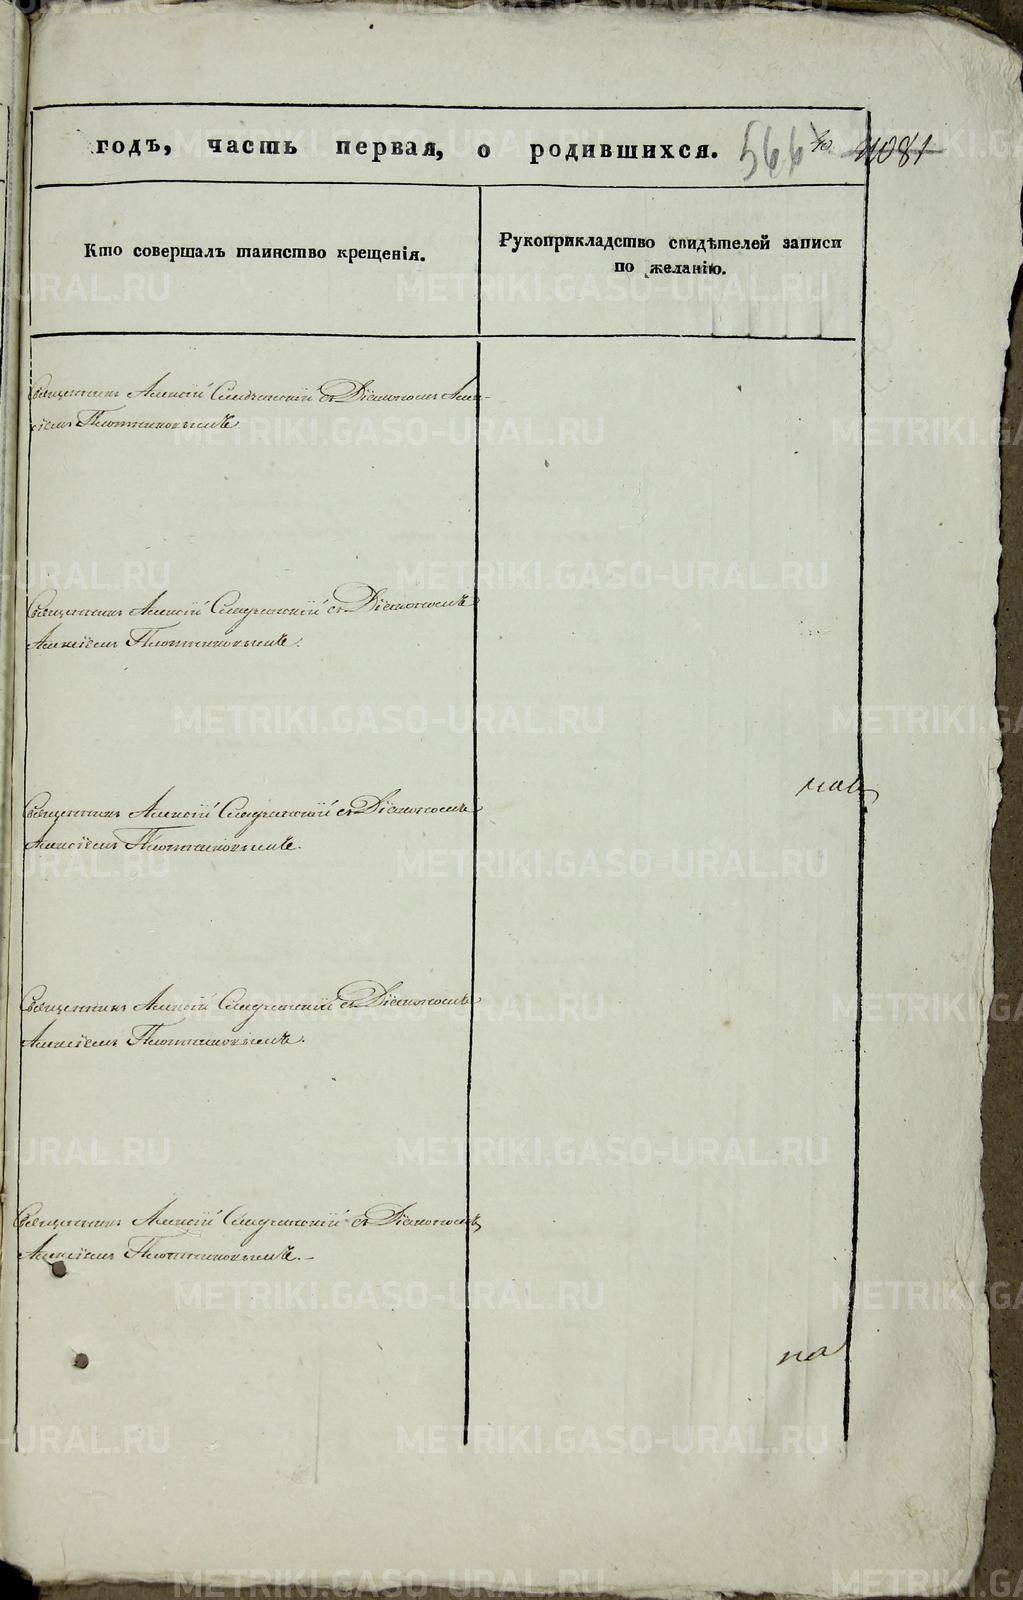 годъ, часть первая, о родившихся. 566
1081
Кто совершалъ таинство крещенія.
Рукоприкладство свидѣтелей записи
по желанію.
Священникъ Алексій съ Діакономъ Алек-
сіемъ Плотниковымъ.
Священникъ Алексій съ Діакономъ
Алексіемъ Плотниковымъ.
Священникъ Алексій съ Діакономъ
Алексіемъ Плотниковымъ.
Священникъ Алексій съ Діакономъ
Алексіемъ Плотниковымъ.
Священникъ Алексій съ Діакономъ
Алексіемъ Плотниковымъ.
METRIKI.GASO-URAL.RU